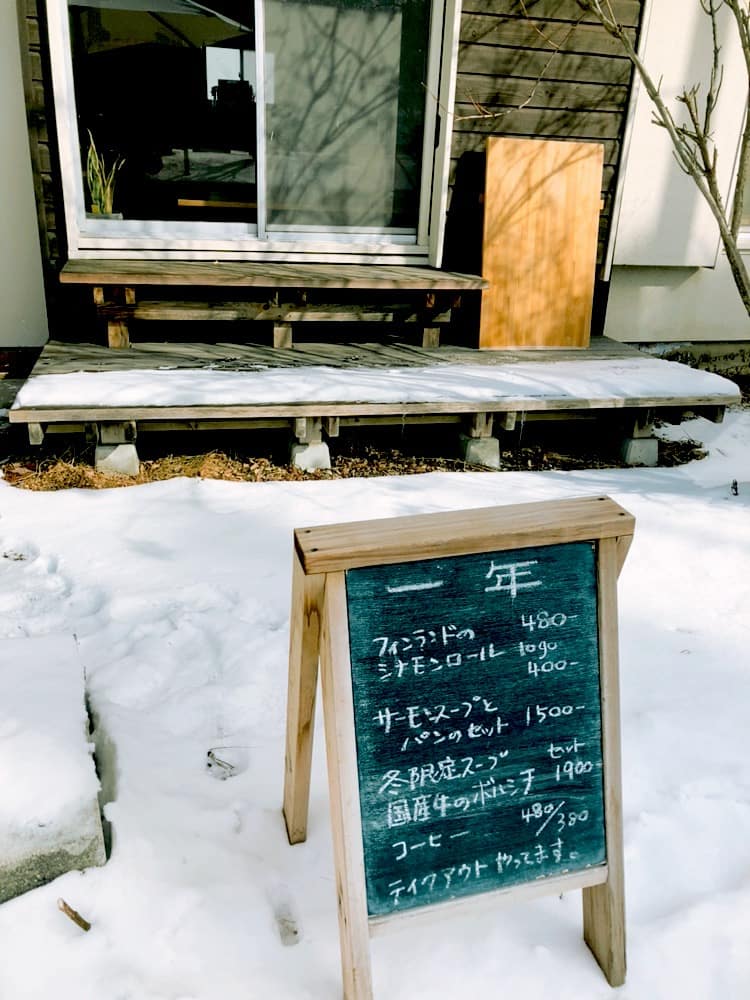 一年
フィンランドの 480-
シナモンロール togo
400-
サーモンスープと
パンのセット 1500-
冬限定スープ セット
国産牛のボルシチ 1900
コーヒー 480/380
テイクアウトやってます。